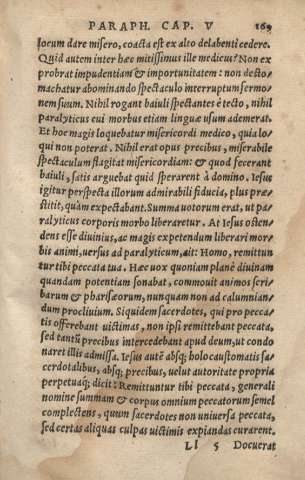 PARAPH. CAP. V 169
locum dare misero, coacta est ex alto delabenti cedere.
Quid autem inter hæc mitissimus ille medicus? Non ex
probrat impudentiam & importunitatem: non desto-
machatur abominando spectaculo interruptum sermo-
nem suum. Nihil rogant baiuli spectantes è tecto, nihil
paralyticus cui morbus etiam linguæ usum ademerat.
Et hoc magis loquebatur misericordi medico, quia lo-
qui non poterat. Nihil erat opus precibus, miserabile
spectaculum flagitat misericordiam: & quod fecerant
baiuli, satis arguebat quid sperarent à domino. Iesus
igitur perspecta illorum admirabili fiducia, plus præ-
stitit, quàm expectabant. Summa uotorum erat, ut pa-
ralyticus corporis morbo liberaretur. At Iesus osten-
dens esse diuinius, ac magis expetendum liberari mor-
bis animi, uersus ad paralyticum, ait: Homo, remittun
tur tibi peccata tua. Hæc uox quoniam planè diuinam
quandam potentiam sonabat, commouit animos scri-
barum & pharisæorum, nunquam non ad calumnian-
dum procliuium. Siquidem sacerdotes, qui pro pecca-
tis offerebant uictimas, non ipsi remittebant peccata,
sed tantũ precibus intercedebant apud deum, ut condo
naret illis admissa. Iesus autẽ absq; holocaustomatis sa-
cerdotalibus, absq; precibus, uelut autoritate propria
perpetuaq; dicit: Remittuntur tibi peccata, generali
nomine summam & corpus omnium peccatorum semel
complectens, quum sacerdotes non uniuersa peccata,
sed certas aliquas culpas uictimis expiandas curarent.
Ll 5 Docuerat